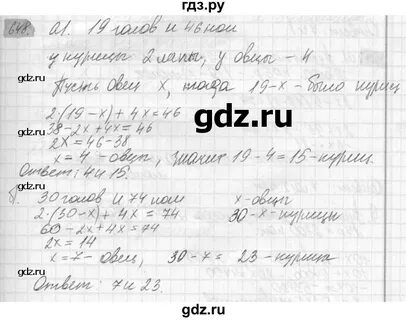 648. а). 19 голов и 46 ног
у курицы 2 лапы, у овцы - 4
Пусть овец x, тогда 19-x - было куриц
2·(19-x)+4x=46
38-2x+4x=46
2x=46-38
x=4 - овцы, значит 19-4=15-куриц.
Ответ: 4 и 15.
б. 30 голов и 74 ног x-овцы
2·(30-x)+4x=74 30-x-курицы
60-2x+4x=74
2x=14
x=7- овец, 30-7= 23-курицы
Ответ: 7 и 23.
gdz.ru
gdz.ru
gdz.ru